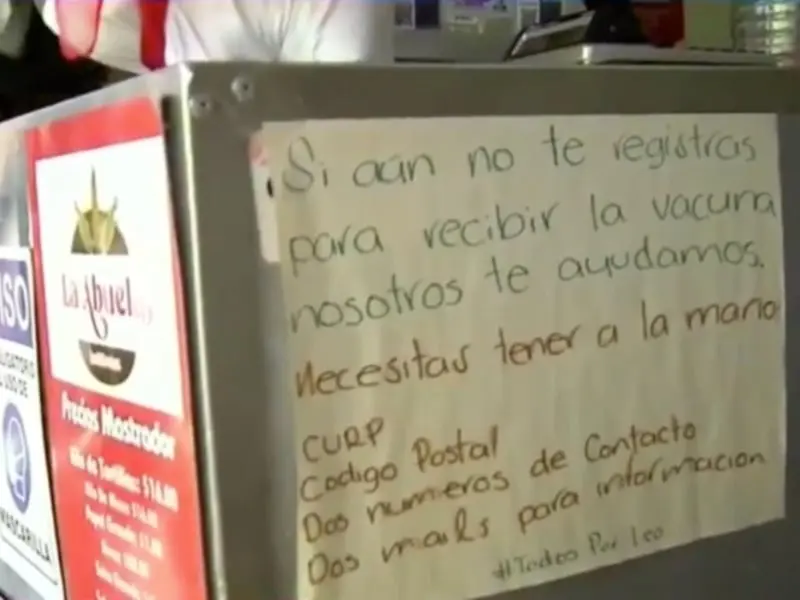 Si aún no te registras
para recibir la vacuna
nosotros te ayudamos.
Necesitas tener a la mano
CURP
Codigo Postal
Dos numeros de Contacto
Dos mails para informacion
#Todos Por Leo
La Abuel
Precios Mostrador
Kilo de Tortillas: $16.00
USO
OBLIGATORIO
USO DE
MASCARILLA